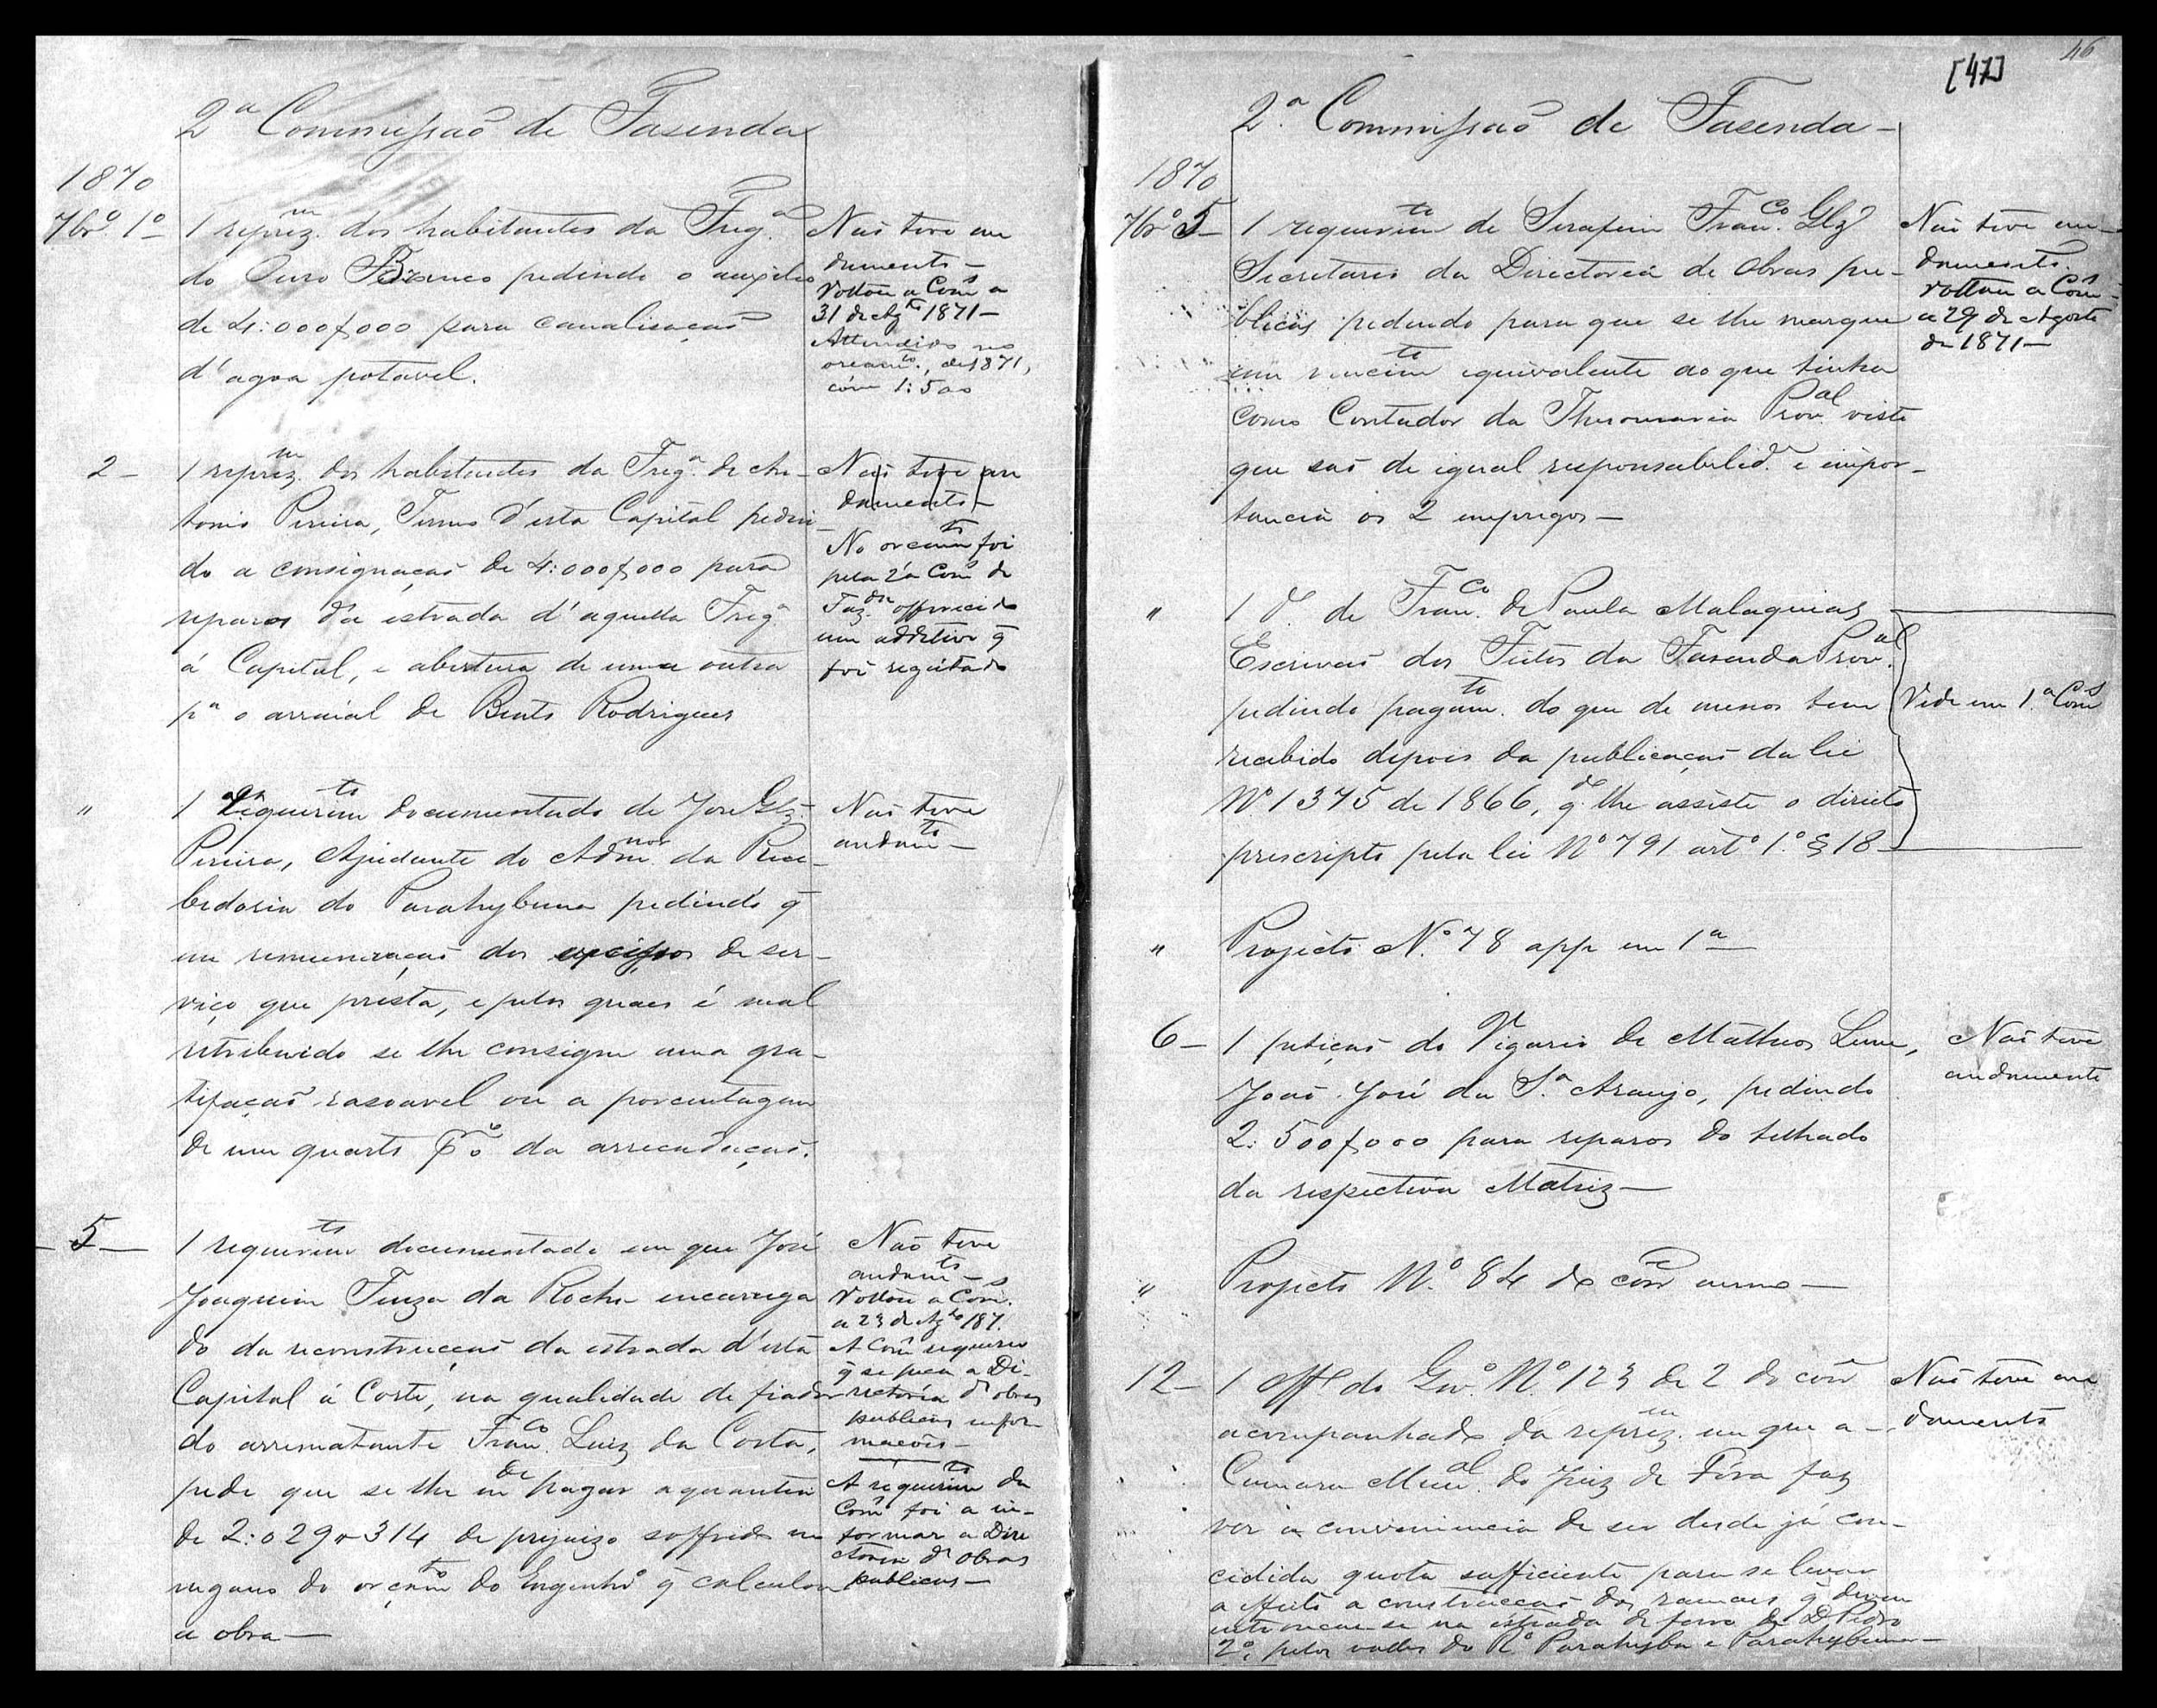 2ª Commissaõ de Fazenda
1870
7brº 1º
1 reprez.m dos habitantes da Freg.ª
do Ouro Branco pedindo o auxilio
de 4:000$000 para canalisaçaõ
d'agoa potavel.
Naõ teve an
damento —
Voltou a Com.s a
31 de Ag.to 1871 —
Attendido no
orcam.to, de 1871,
com 1:500
2 —
1 reprez.m dos habitantes da Freg.ª de An-
tonio Pereira, Termo d'esta Capital pedin-
do a consignaçaõ de 4:000$000 para
reparos da estrada d'aquella Freg.ª
á Capital, e abertura de uma outra
pª o arraial de Bento Rodrigues
Naõ teve an
damento —
No orcam.to foi
pela 2ª Com.s de
Faz.da offerecido
um additivo q̃
foi regeitado
"
1 Requerim.to documentado de José Glz.
Pereira, Ajudante do Adm.nor da Rece-
bedoria do Parahybuna pedindo q̃
em remuneraçaõ dos excessos de ser-
viço que presta, e pelos quaes é mal
retribuido se lhe consigne uma gra-
tifaçaõ rasoavel ou a porcentagem
de um quarto p% da arrecadaçaõ.
Naõ teve
andam.to —
5 —
1 requerim.to documentado em que José
Joaquim Fiuza da Rocha encarrega
do da reconstrucçaõ da estrada d'esta
Capital á Corte, na qualidade de fiador
do arrematante Fran.co Luiz da Costa,
pede que se lhe m.de pagar a quantia
de 2:029$314 de prejuizo soffrido em
engano do orçam.to do Engenhrº q̃ calculou
a obra —
Naõ teve
andam.to —
Voltou a Com.s
a 23 de Ag.to 187.
A Com.s requereu
q̃ se peça a Di-
rectoria d'obras
publicas infor-
macões —
A requerim.to da
Com.s foi a in-
formar a Dire
ctoria d'obras
publicas —
[47]
46
2.ª Commissaõ de Fazenda —
1870
7brº 5 —
1 requerim.to de Serafim Fran.co Glz
Secretario da Directoria de Obras pu-
blicas pedindo para que se lhe marque
um vencim.to equivalente ao que tinha
como Contador da Thesouraria Prov.al visto
que saõ de igual responsabilid.e e impor-
tancia os 2 empregos —
Naõ teve an-
damento.
Voltou a Com.s
a 29 de Agosto
de 1871 —
"
1 d.º de Fran.co de Paula Malaquias
Escrivaõ dos Feitos da Fazenda Prov.al
pedindo pagam.to do que de menos tem
recebido depois da publicaçaõ da lei
Nº 1375 de 1866, q.do lhe assiste o direito
prescripto pela lei Nº 791 artº 1.º § 18 —
Vide em 1.ª Com.s
"
Projecto N.º 78 app em 1ª —
6 —
1 petiçaõ do Vigario de Matheos Leme,
Joaõ José da S.ª Araujo, pedindo
2:500$000 para reparos do telhado
da respectiva Matriz —
Naõ teve
andamento
"
Projecto N.º 84 —
12 —
1 off.º do Gov.º N.º 123 de 2 do corr.e
acompanhado da reprez.m em que a
Camara Mun.al do Juiz de Fóra faz
ver a conveniencia de ser desde já con-
cedida quota sufficiente para se levar
a effeito a construccaõ dos ramaes q̃ devem
entroncar-se na estrada de ferro de D. Pedro
2.º, pelos valles do Rº Parahyba e Parahybuna —
Naõ teve an
damento